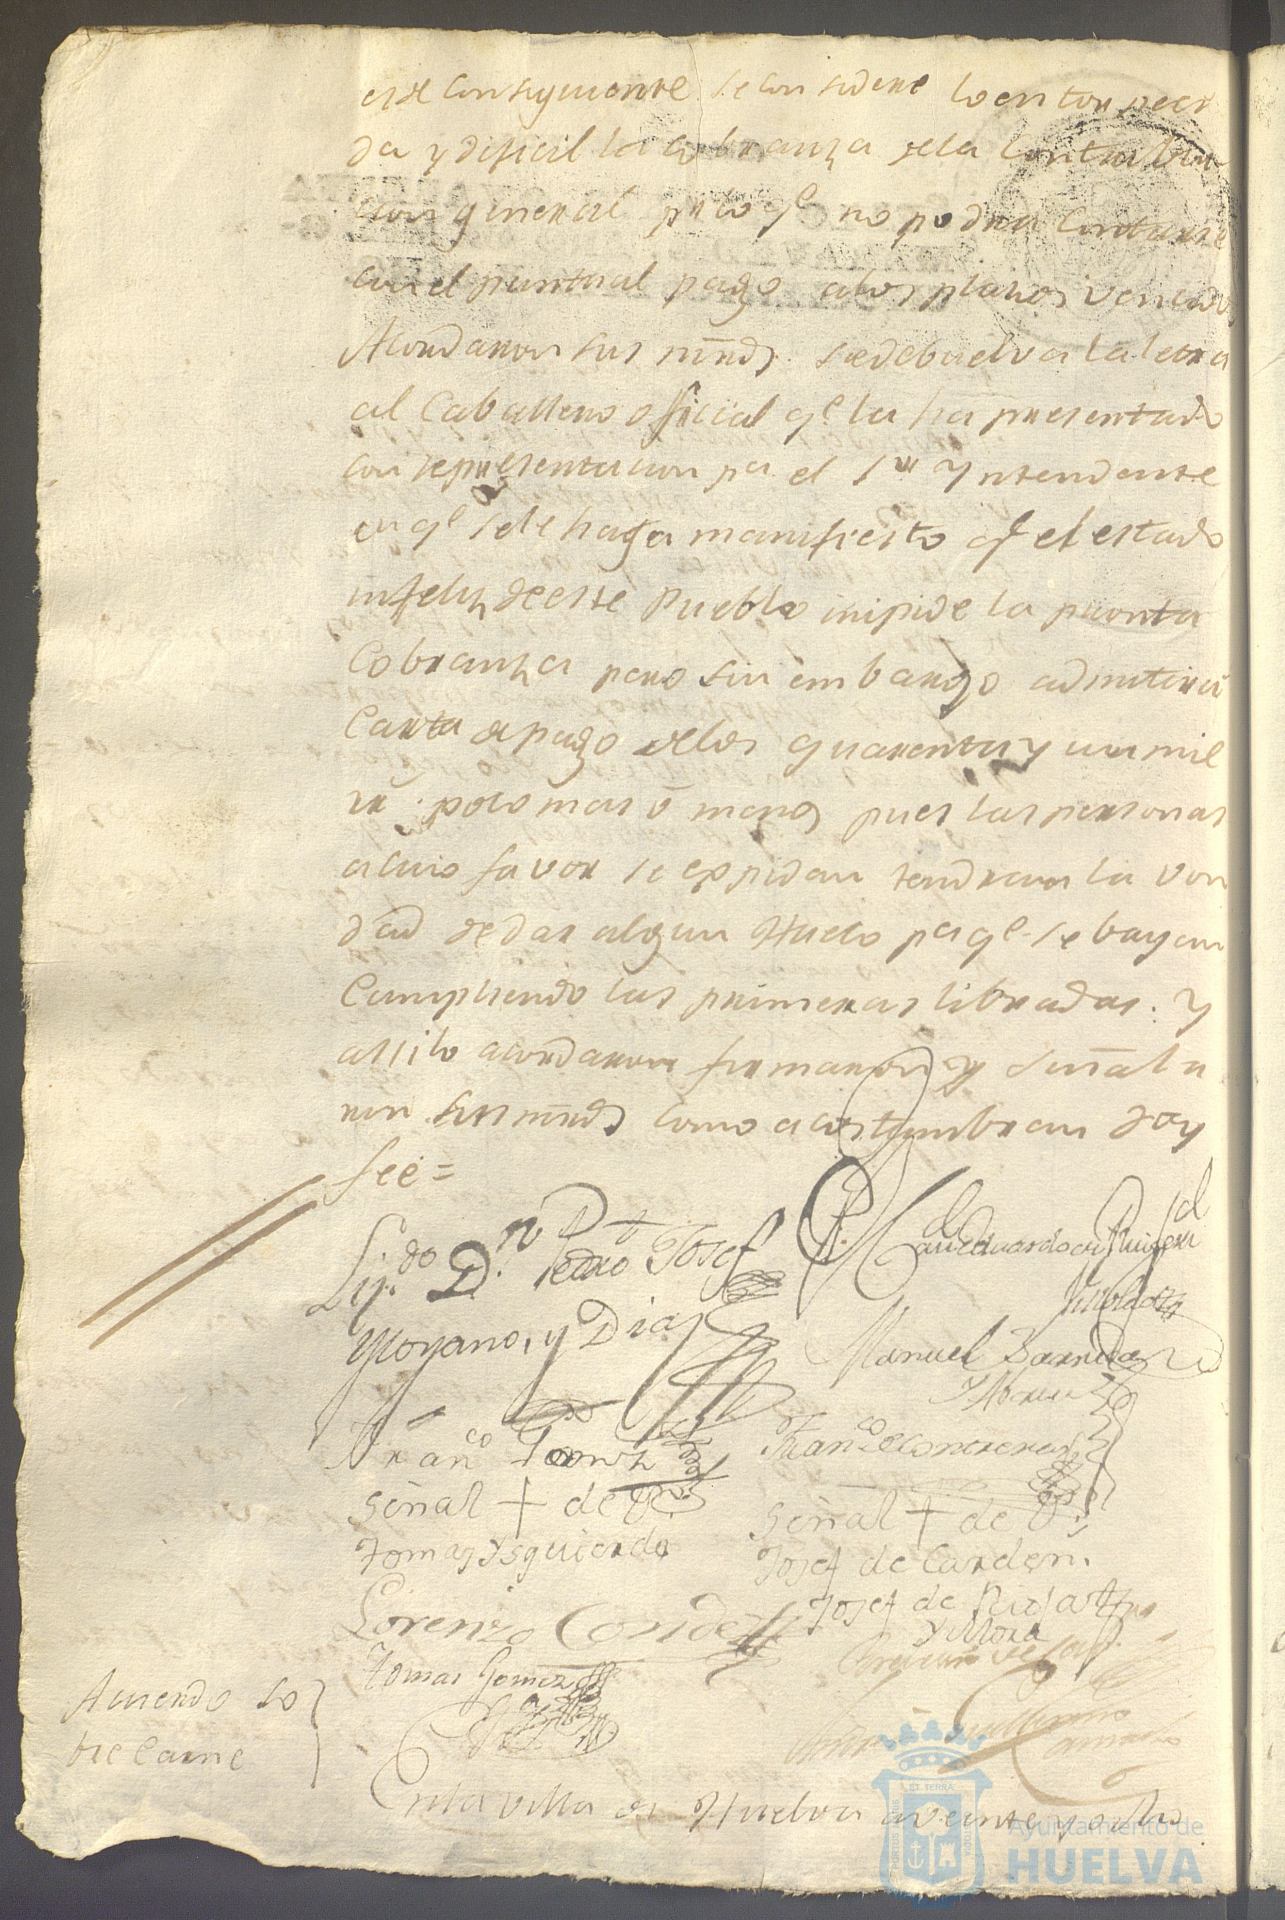 es consiguiente se considere lo entorpeci
da y dificil la cobranza de la Contribu
cion general pr lo qe no podra Contarse
con el puntual pago a los plazos vencidos
Acordaron sus mrds. se debuelva la letra
al Caballero oficial qe la ha presentado
con representacion pa el Sor Yntendente
en qe se le haga manifiesto qe el estado
infeliz de este Pueblo inpide la pronta
Cobranza pero sin embargo admitira
Carta de pago de los quarenta y un mil
rr. poco mas ó menos pues las personas
a cuio favor se expidan tendran la von
dad de dar algun Hueco pa qe se bayan
Cumpliendo las primeras libradas. Y
assi lo acordaron firmaron y señala
ron sus mrds como acostumbran doy
fee =
Lizdo Dn Pedro Josef
Moyano, y Diaz
Manuel Barreda
Franco
Franco de Contreras
Señal + de
Tomas Ysquierdo
Señal + de
Josef de Carden.
Lorenzo Conde
Josef de
y Mora
Tomas Gomez
Acuerdo so
bre Carne
En la villa de Huelva a veinte y ocho
Ayuntamiento de
HUELVA